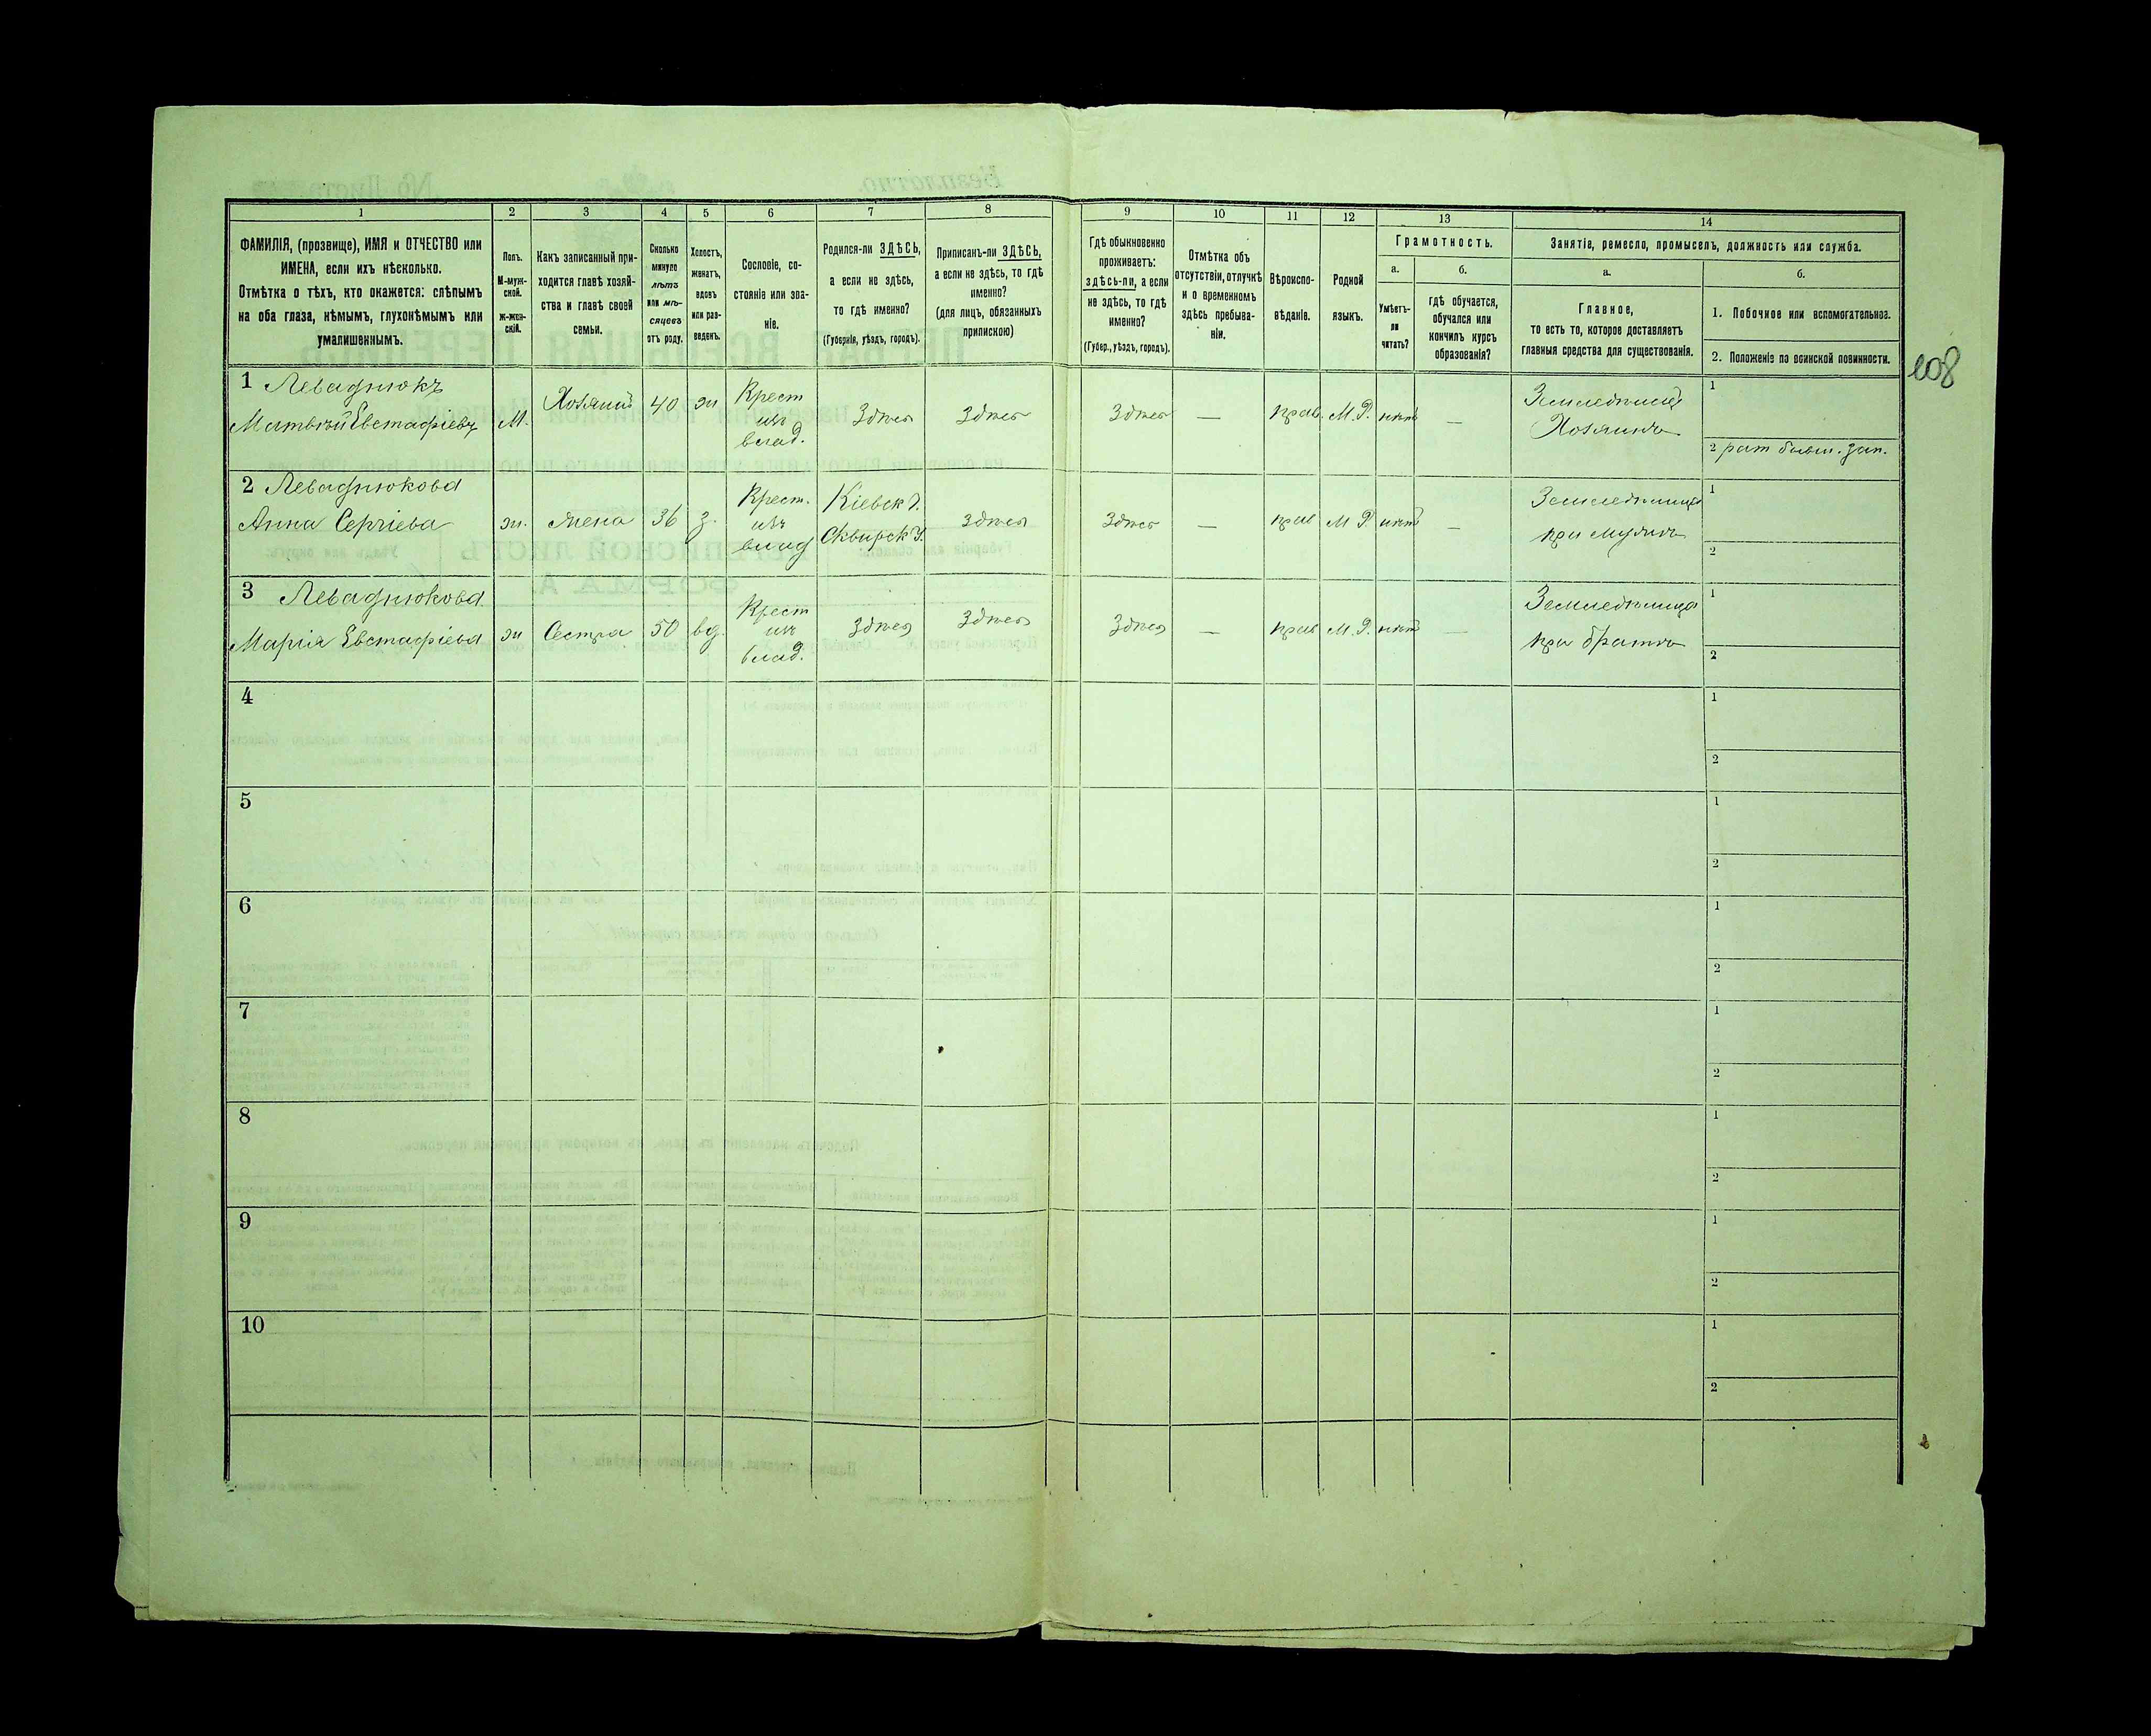 1 2 3 4 5 6 7 8 9 10 11 12 13 14
ФАМИЛІЯ, (прозвище), ИМЯ и ОТЧЕСТВО или
ИМЕНА, если ихъ нѣсколько.
Отмѣтка о тѣхъ, кто окажется: слѣпымъ
на оба глаза, нѣмымъ, глухонѣмымъ или
умалишеннымъ.
Полъ.
М-муж-
ской.
Ж-жен-
скій.
Какъ записанный при-
ходится главѣ хозяй-
ства и главѣ своей
семьи.
Сколько
минуло
лѣтъ
или мѣ-
сяцевъ
отъ роду.
Холостъ,
женатъ,
вдовъ
или раз-
веденъ.
Сословіе, со-
стояніе или зва-
ніе.
Родился-ли ЗДѢСЬ,
а если не здѣсь,
то гдѣ именно?
(Губернія, уѣздъ, городъ).
Приписанъ-ли ЗДѢСЬ,
а если не здѣсь, то гдѣ
именно?
(для лицъ, обязанныхъ
припискою)
Гдѣ обыкновенно
проживаетъ:
здѣсь-ли, а если
не здѣсь, то гдѣ
именно?
(Губер., уѣздъ, городъ).
Отмѣтка объ
отсутствіи, отлучкѣ
и о временномъ
здѣсь пребыва-
ніи.
Вѣроиспо-
вѣданіе.
Родной
языкъ.
Грамотность.
а.
Умѣетъ-
ли
читать?
б.
гдѣ обучается,
обучался или
кончилъ курсъ
образованія?
Занятіе, ремесло, промыселъ, должность или служба.
а.
Главное,
то есть то, которое доставляетъ
главныя средства для существованія.
б.
1. Побочное или вспомогательное.
2. Положеніе по воинской повинности.
108
1 Леваднюкъ
Матвѣй Евстафіевъ
М.
Хозяинъ
40
ж
Крест
изъ
влад.
Здѣсь
Здѣсь
Здѣсь
—
прав.
М. Р.
нѣтъ
—
Земледѣлецъ
Хозяинъ
1
2 рат бывш. зап.
2 Леваднюкова
Анна Сергіева
ж.
жена
36
з.
Крест.
изъ
влад
Кіевск Г.
Сквирск У.
Здѣсь
Здѣсь
—
прав
М Р.
нѣтъ
—
Земледѣлица
при мужѣ
1
2
3 Леваднюкова
Марія Евстафіева
ж
Сестра
50
вд.
Крест
изъ
влад.
Здѣсь
Здѣсь
Здѣсь
—
прав
М. Р.
нѣтъ
—
Земледѣлица
при братѣ
1
2
4
1
2
5
1
2
6
1
2
7
1
2
8
1
2
9
1
2
10
1
2